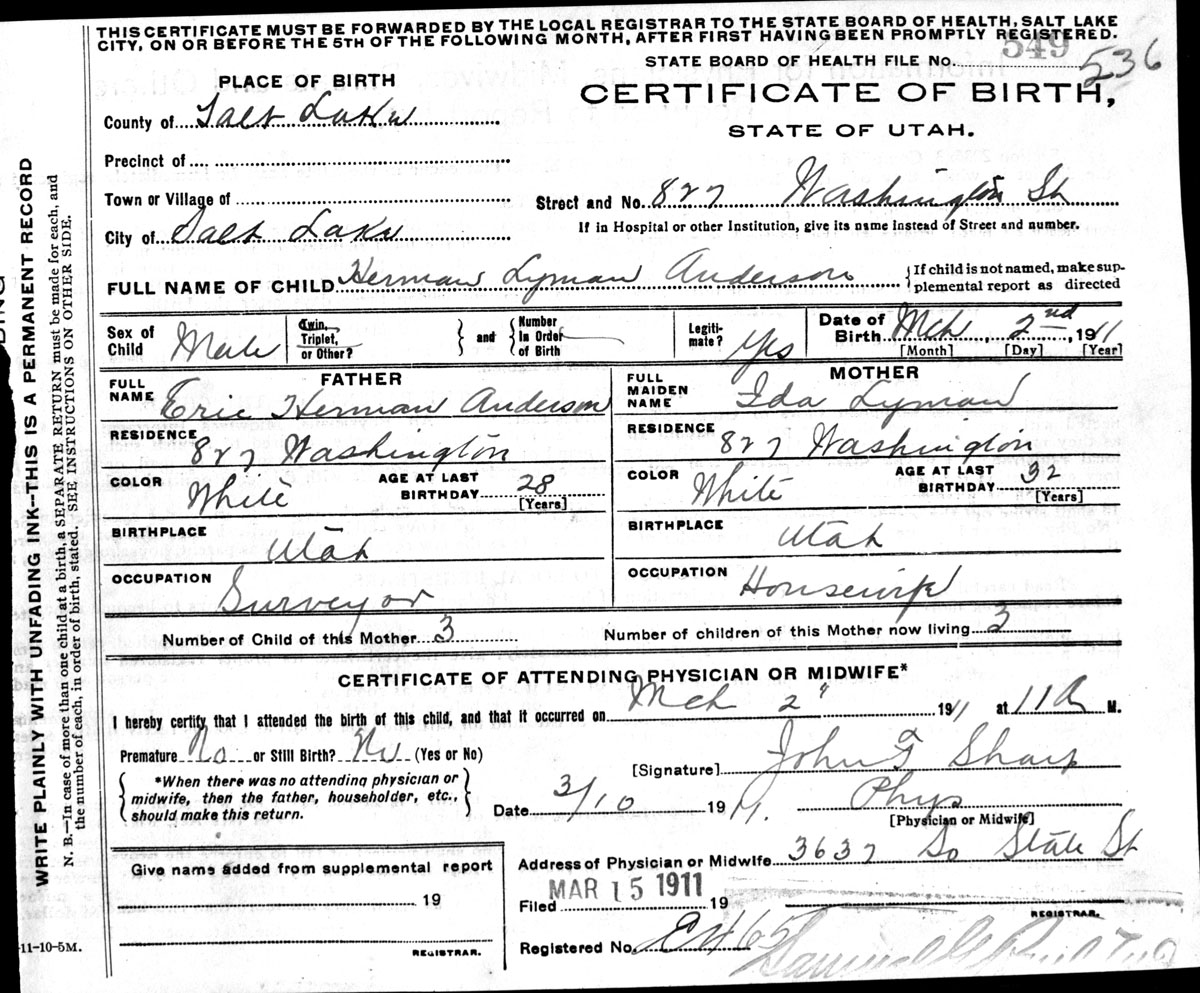 THIS CERTIFICATE MUST BE FORWARDED BY THE LOCAL REGISTRAR TO THE STATE BOARD OF HEALTH, SALT LAKE
CITY, ON OR BEFORE THE 5TH OF THE FOLLOWING MONTH, AFTER FIRST HAVING BEEN PROMPTLY REGISTERED.
549
STATE BOARD OF HEALTH FILE No. 536
PLACE OF BIRTH
CERTIFICATE OF BIRTH,
STATE OF UTAH.
County of Salt Lake
Precinct of
Town or Village of
Street and No. 827 Washington St
City of Salt Lake
If in Hospital or other Institution, give its name instead of Street and number.
FULL NAME OF CHILD Herman Lyman Anderson
If child is not named, make sup-
plemental report as directed
Sex of Child Male
Twin, Triplet, or Other?
and
Number In Order of Birth
Legiti-mate? Yes
Date of Birth Mch 2nd, 1911
[Month] [Day] [Year]
FATHER
FULL NAME Eric Herman Anderson
RESIDENCE 827 Washington
COLOR White AGE AT LAST BIRTHDAY 28 [Years]
BIRTHPLACE Utah
OCCUPATION Surveyor
MOTHER
FULL MAIDEN NAME Ida Lyman
RESIDENCE 827 Washington
COLOR White AGE AT LAST BIRTHDAY 32 [Years]
BIRTHPLACE Utah
OCCUPATION Housewife
Number of Child of this Mother 3 Number of children of this Mother now living 3
CERTIFICATE OF ATTENDING PHYSICIAN OR MIDWIFE*
I hereby certify, that I attended the birth of this child, and that it occurred on Mch 2" 1911 at 11 A M.
Premature No or Still Birth? No (Yes or No)
[Signature] John F Sharp
*When there was no attending physician or
midwife, then the father, householder, etc.,
should make this return.
Date 3/10 1911. Phys
[Physician or Midwife]
Address of Physician or Midwife 3637 So State St
Give name added from supplemental report
19
REGISTRAR.
Filed MAR 15 1911 19
REGISTRAR.
Registered No. E465
11-10-5M.
WRITE PLAINLY WITH UNFADING INK—THIS IS A PERMANENT RECORD
N. B.—In case of more than one child at a birth, a SEPARATE RETURN must be made for each, and
the number of each, in order of birth, stated. SEE INSTRUCTIONS ON OTHER SIDE.